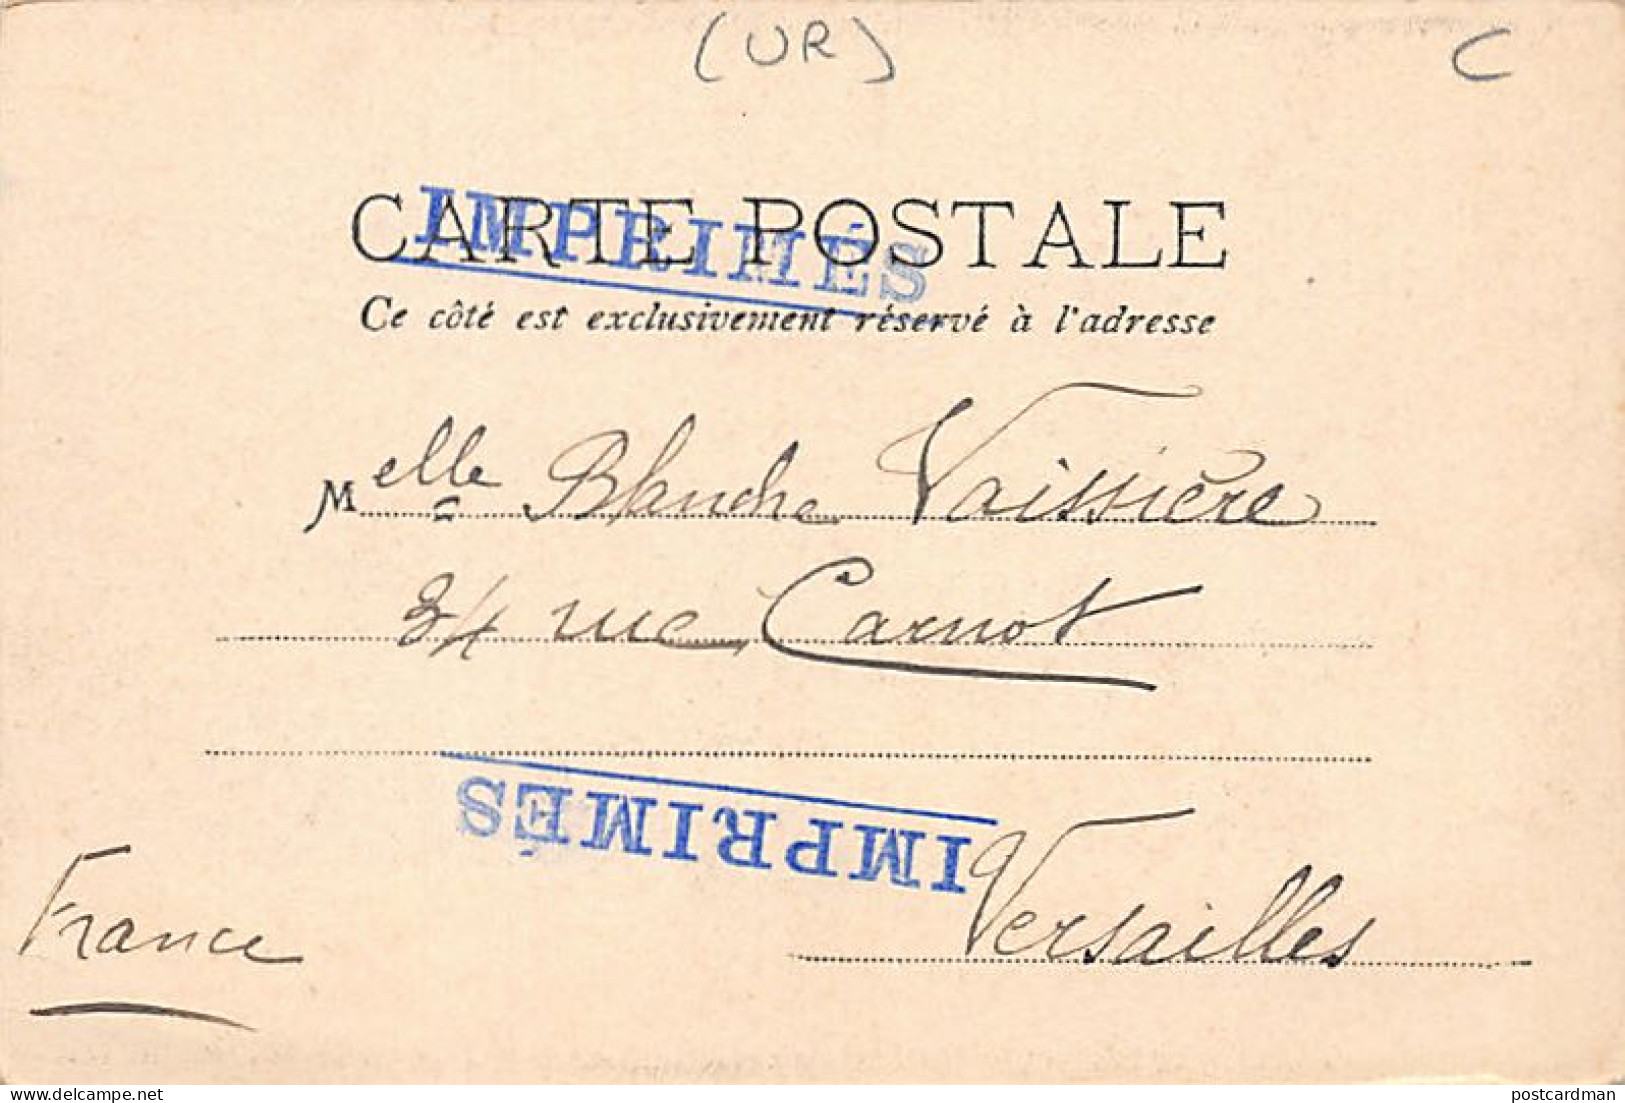 (UR) C
CARTE POSTALE
IMPRIMÉS
Ce côté est exclusivement réservé à l'adresse
Melle Blanche Vaissière
34 rue Carnot
IMPRIMÉS
Versailles
France
delcampe.net
postcardman